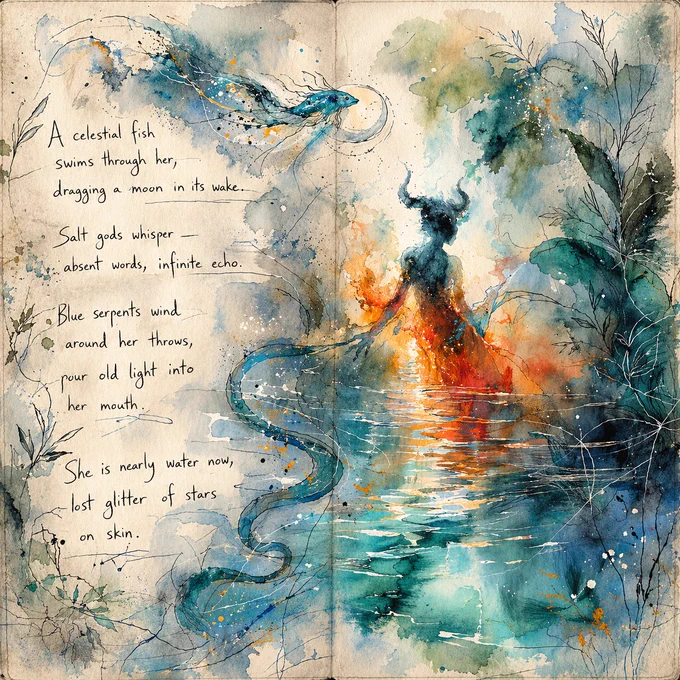 A celestial fish
swims through her,
dragging a moon in its wake.
Salt gods whisper —
absent words, infinite echo.
Blue serpents wind
around her throws,
pour old light into
her mouth.
She is nearly water now,
lost glitter of stars
on skin.